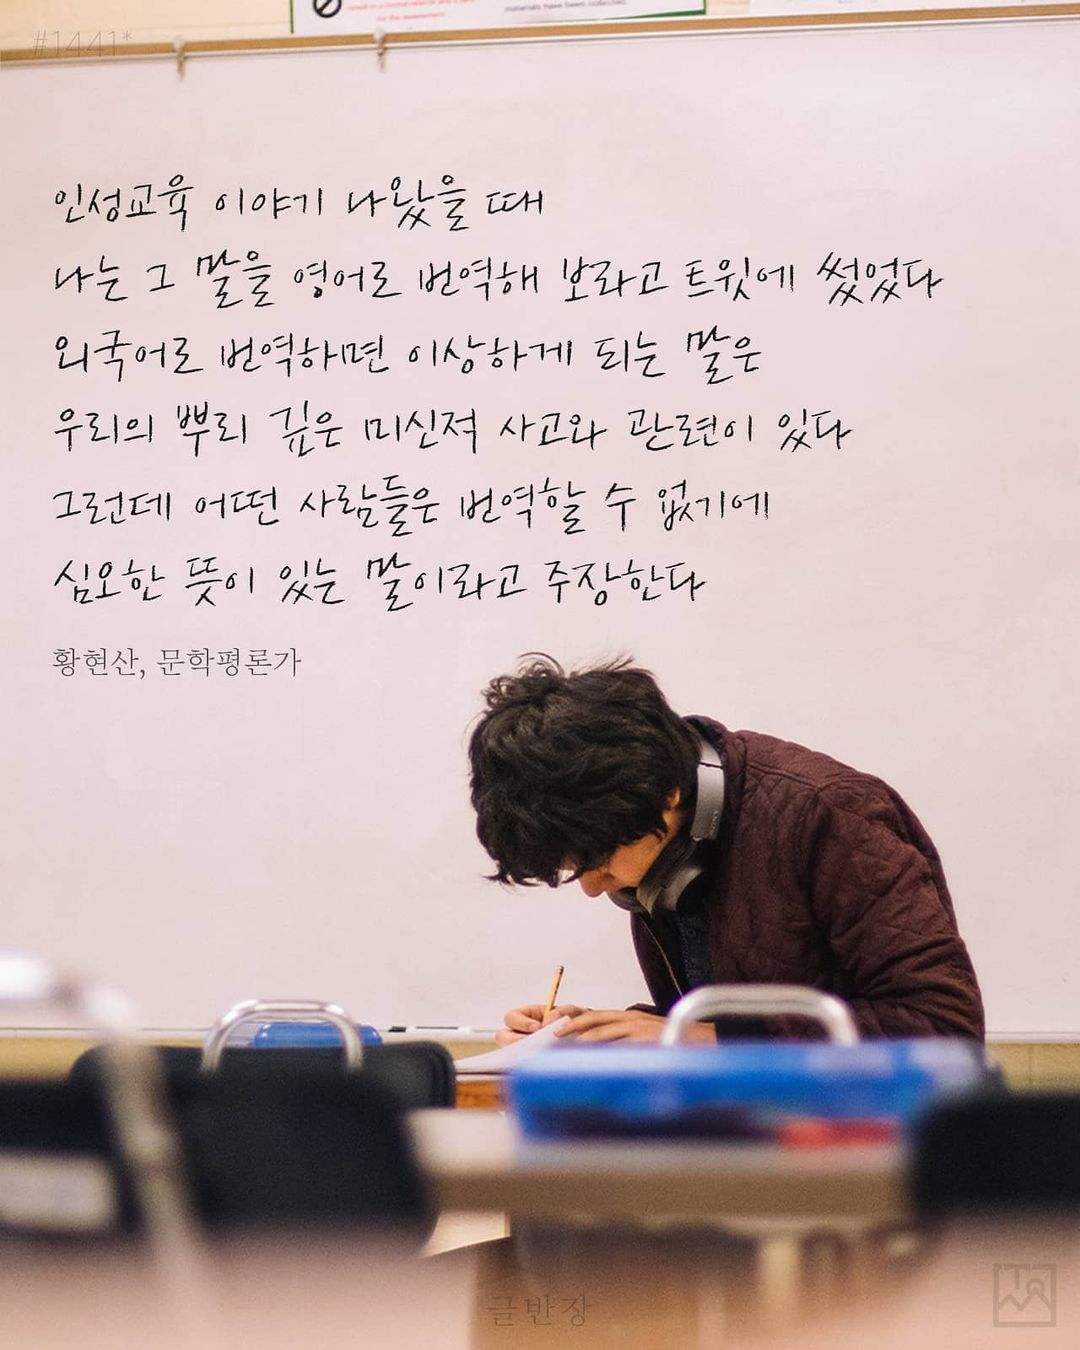 #1441*
인성교육 이야기 나왔을 때
나는 그 말을 영어로 번역해 보라고 트윗에 썼었다
외국어로 번역하면 이상하게 되는 말은
우리의 뿌리 깊은 미신적 사고와 관련이 있다
그런데 어떤 사람들은 번역할 수 없기에
심오한 뜻이 있는 말이라고 주장한다
황현산, 문학평론가
글반장